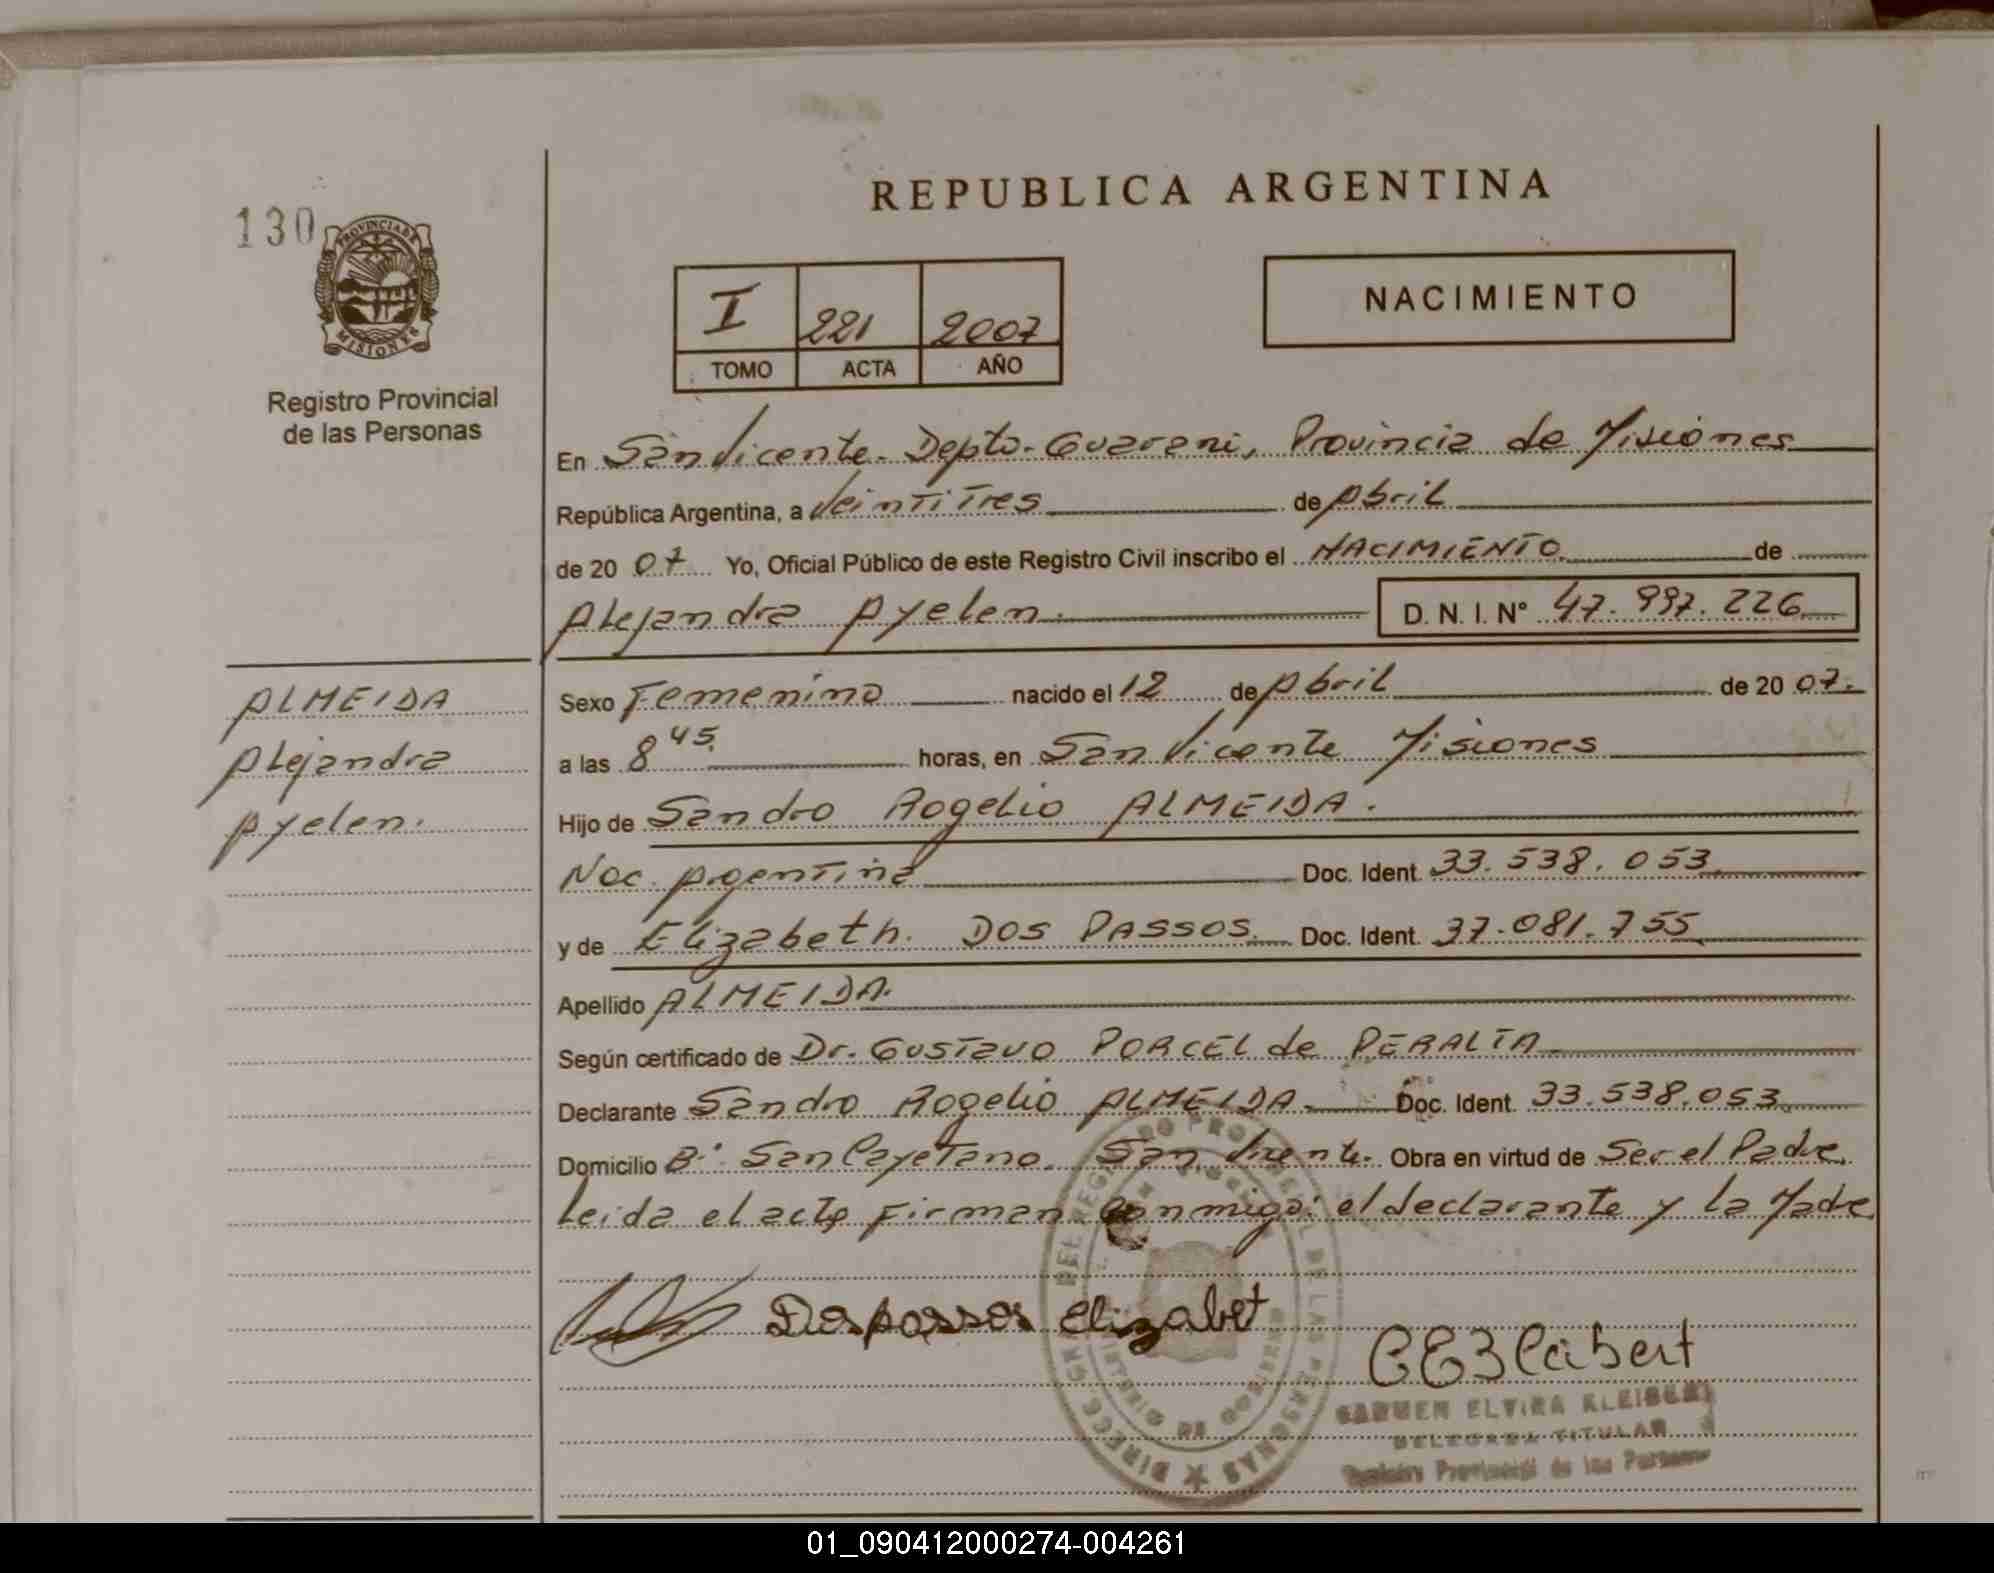 130
PROVINCIA DE
MISIONES
Registro Provincial
de las Personas
REPUBLICA ARGENTINA
I 221 2007
TOMO ACTA AÑO
NACIMIENTO
En San Vicente - Depto - Guarani, Provincia de Misiones
República Argentina, a Veintitres de Abril
de 2007 Yo, Oficial Público de este Registro Civil inscribo el NACIMIENTO de
Alejandra Ayelen. D. N. I. N° 47.997.226
ALMEIDA
Alejandra
Ayelen.
Sexo Femenino nacido el 12 de Abril de 2007.
a las 8 45. horas, en San Vicente Misiones
Hijo de Sandro Rogelio ALMEIDA.
Nac. Argentina Doc. Ident. 33.538.053
y de Elizabeth. DOS PASSOS. Doc. Ident. 37.081.755
Apellido ALMEIDA.
Según certificado de Dr. Gustavo PORCEL de PERALTA
Declarante Sandro Rogelio ALMEIDA. Doc. Ident. 33.538.053
Domicilio B° San Cayetano. San Vicente. Obra en virtud de Ser el Padre.
Leida el acta Firman Conmigo: el declarante y la Madre.
Dos passos Elizabet
CARMEN ELVIRA KLEIBERT
DELEGADA TITULAR
Registro Provincial de las Personas
01_090412000274-004261